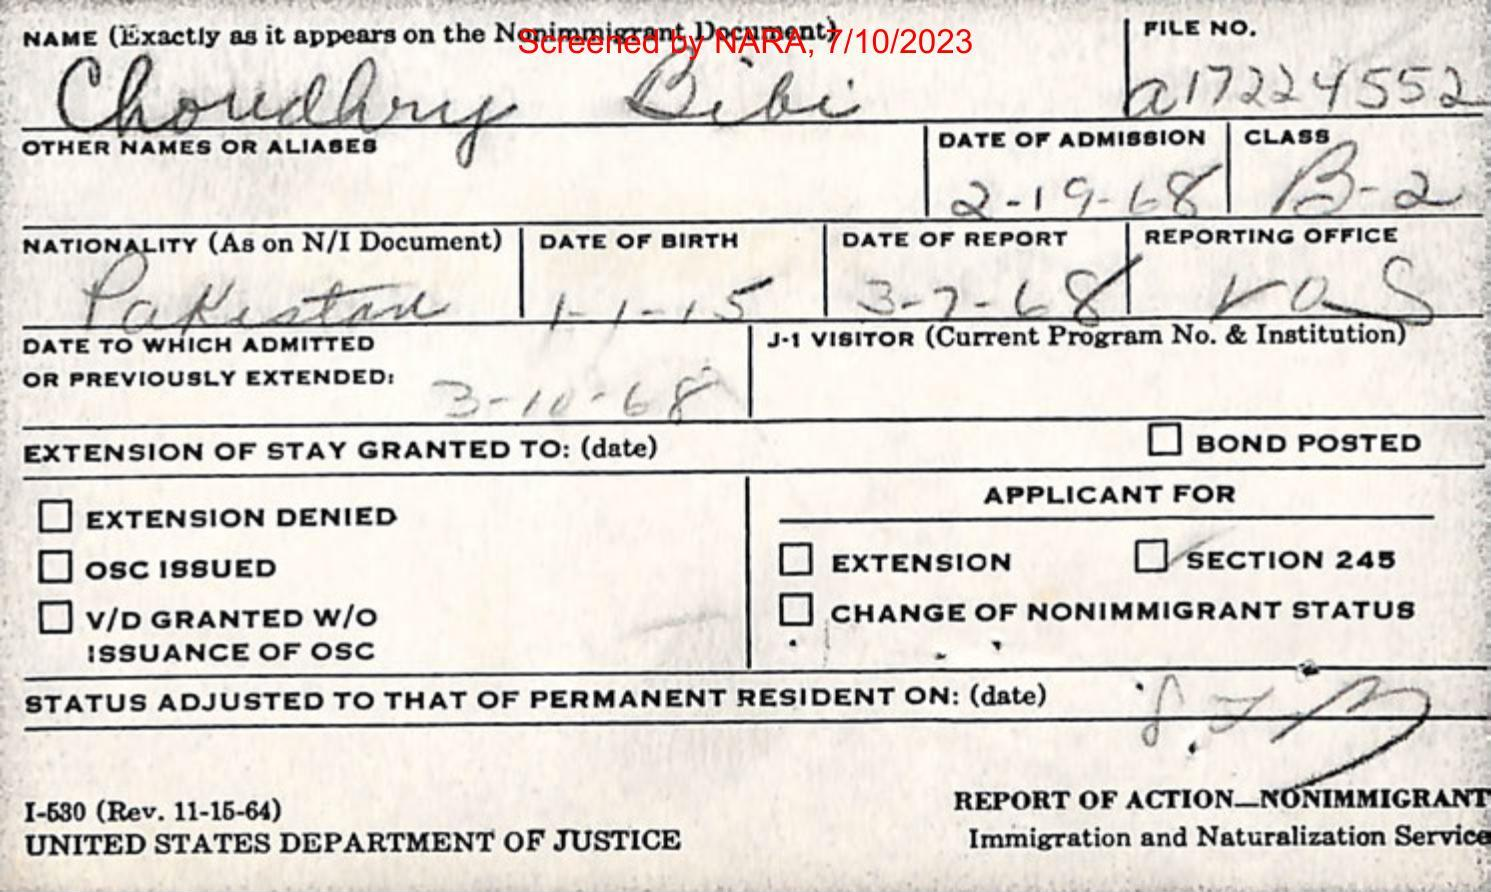 NAME (Exactly as it appears on the Nonimmigrant Document)
Screened by NARA, 7/10/2023
FILE NO.
Choudhry Bibi
a17224552
OTHER NAMES OR ALIASES
DATE OF ADMISSION
CLASS
2-19-68
B-2
NATIONALITY (As on N/I Document)
DATE OF BIRTH
DATE OF REPORT
REPORTING OFFICE
Pakistan
1-1-15
3-7-68
DATE TO WHICH ADMITTED
OR PREVIOUSLY EXTENDED:
3-10-68
J-1 VISITOR (Current Program No. & Institution)
EXTENSION OF STAY GRANTED TO: (date)
BOND POSTED
EXTENSION DENIED
OSC ISSUED
V/D GRANTED W/O
ISSUANCE OF OSC
APPLICANT FOR
EXTENSION
SECTION 245
CHANGE OF NONIMMIGRANT STATUS
STATUS ADJUSTED TO THAT OF PERMANENT RESIDENT ON: (date)
I-530 (Rev. 11-15-64)
UNITED STATES DEPARTMENT OF JUSTICE
REPORT OF ACTION—NONIMMIGRANT
Immigration and Naturalization Service